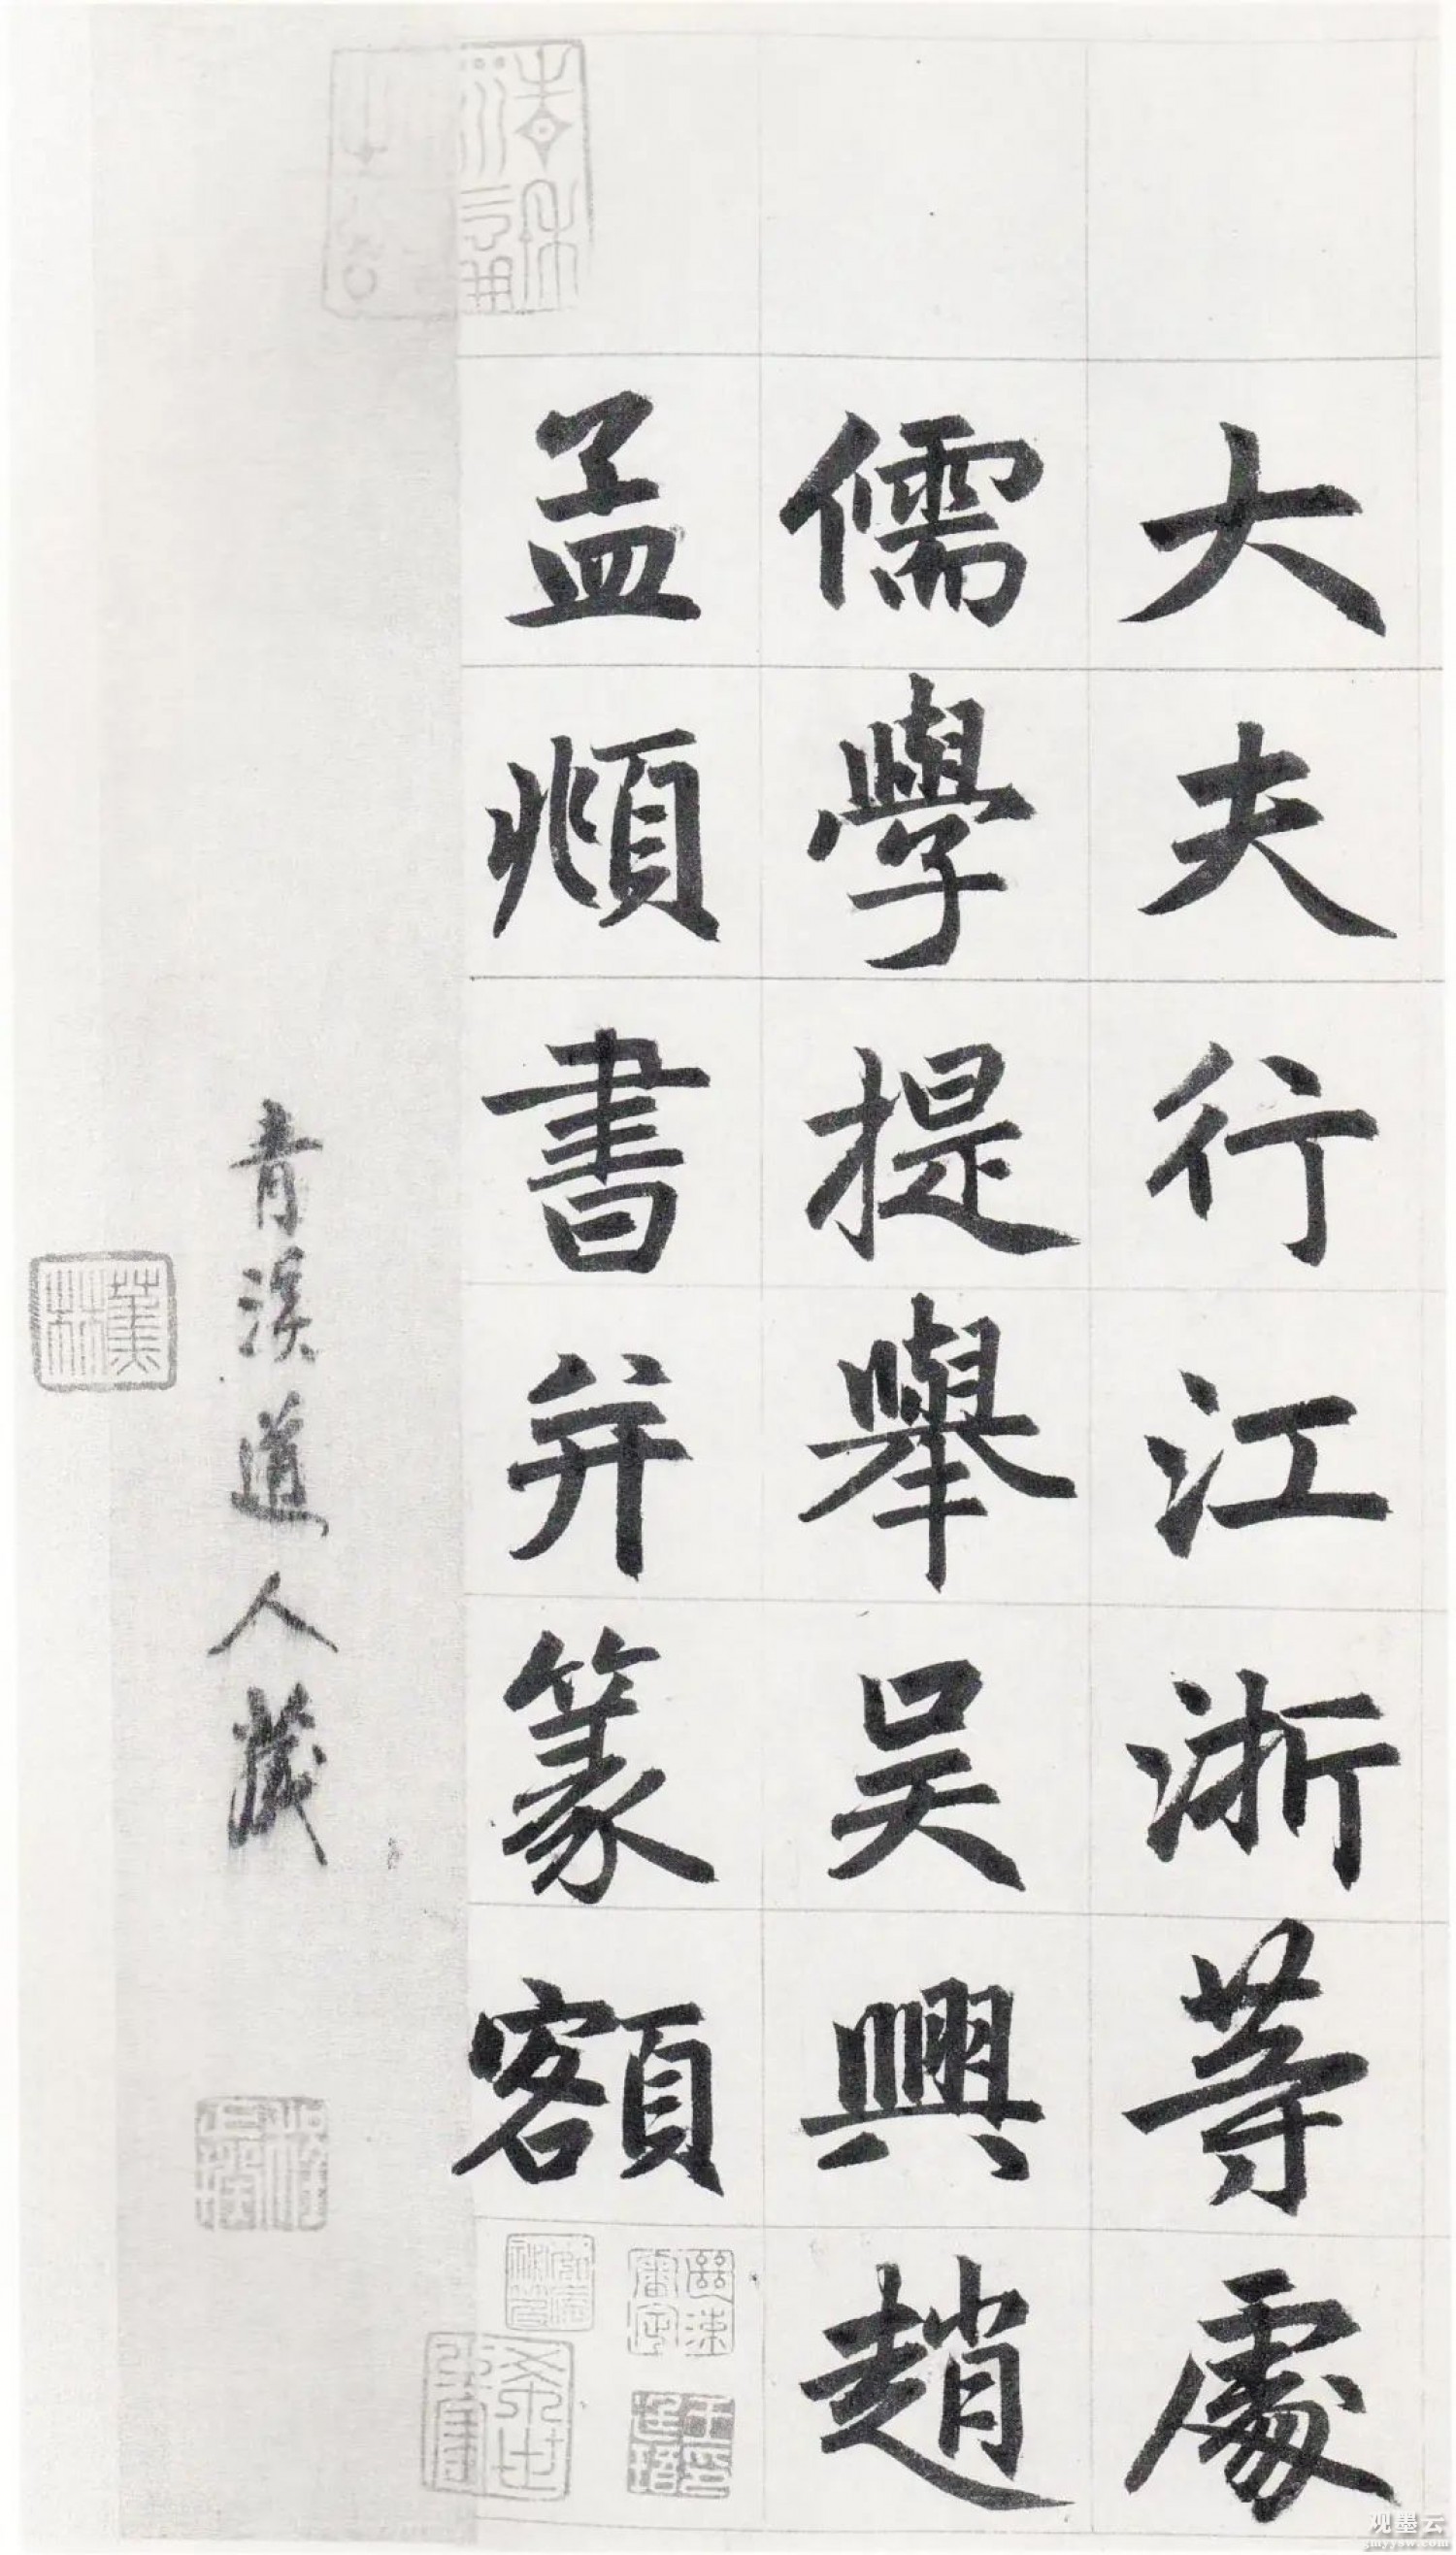 大夫行江浙等處
儒學提舉吳興趙
孟頫書并篆額
青溪道人藏
蕉林
观墨云